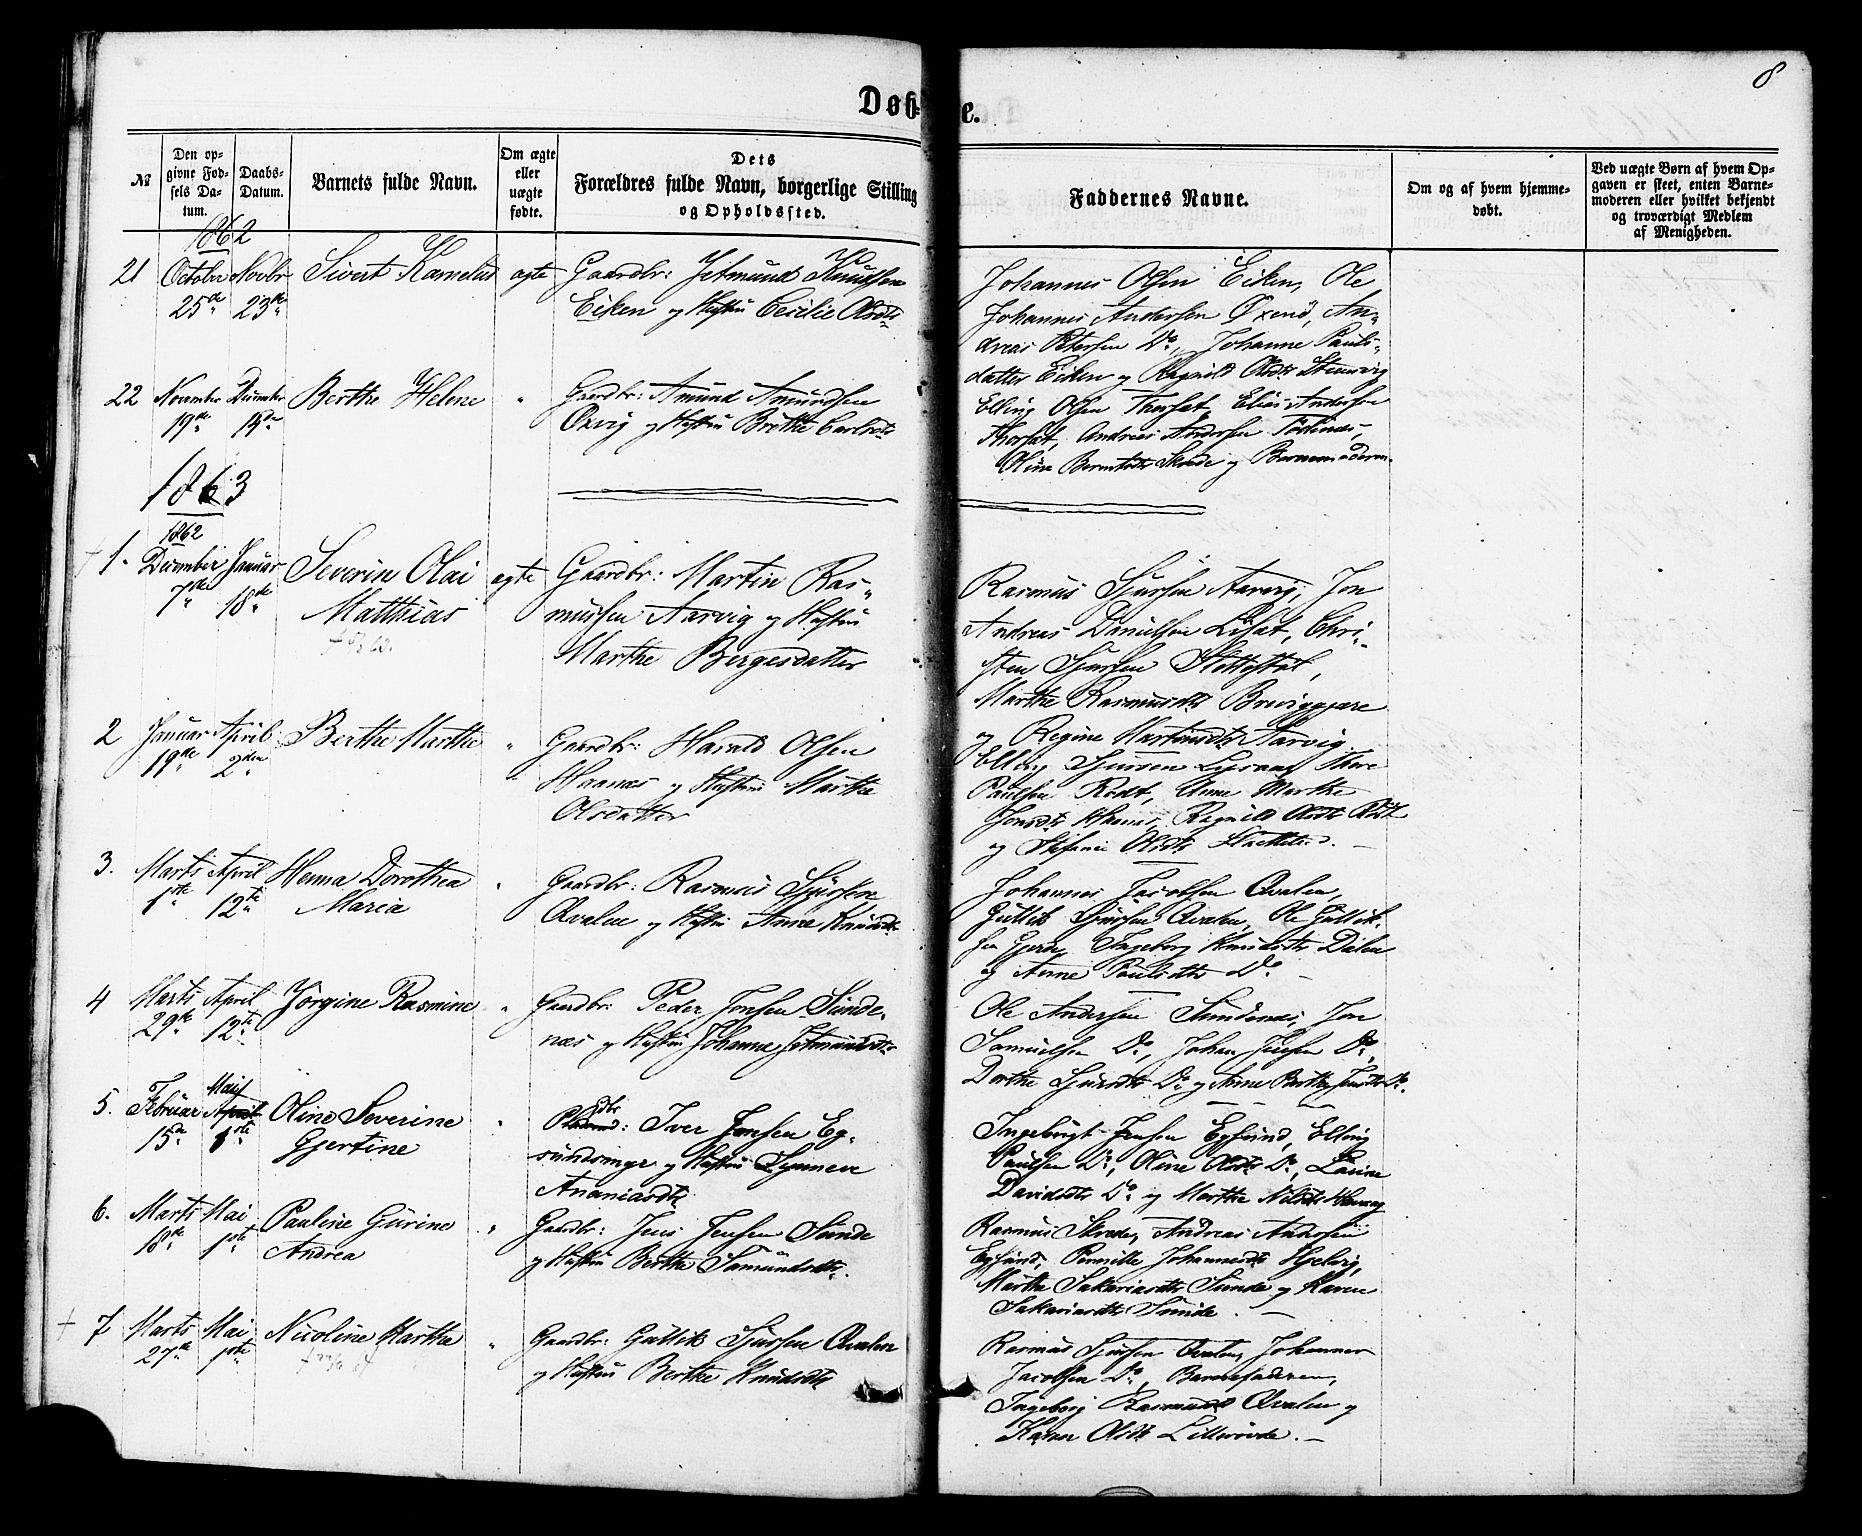 8
Døb-
e.
№
Den op-
givne Fød-
sels Da-
tum.
Daabs-
Datum.
Barnets fulde Navn.
Om ægte
eller
uægte
fødte.
Dets
Forældres fulde Navn, borgerlige Stilling
og Opholdssted.
Faddernes Navne.
Om og af hvem hjemme-
døbt.
Ved uægte Børn af hvem Op-
gaven er skeet, enten Barne-
moderen eller hvilket bekjendt
og troværdigt Medlem
af Menigheden.
1862
21
October
25de
Novbr
23de
Sivert Kornelius
ægte
Gaardbr: Jetmund Knudsen
Eiken og Hustru Cecilie Olsdtr
Johannes Olsen Eiken, Ole
Johannes Andersen Øxend, An-
dreas Petersen Do, Johanne Pauls-
datter Eiken og Ragnild Olsdtr
22
November
19de
December
Berthe Helene
"
Gaardbr: Amund Amundsen
Oxvig og Hustru Brithe Carlsdtr
Elling Olsen Thorsæt, Elias Andersen
Thorsæt, Andreas Andersen
Oline Berntsdtr Skrede og Barnemoderen
1863
1.
1862
December
7de
Januar
18de
Severin Olai
Matthias
ægte
Gaardbr: Martin Ras-
mussen Aarvig og Hustru
Marthe Bergesdatter
Rasmus Sjursen Aarvig, Jon
Andreas Danielsen Lisæt, Chri-
sten Sjursen
Marthe Rasmusdtr
og Regine Martinsdtr Aarvig
2
Januar
19de
April
2den
Berthe Marthe
"
Gaardbr: Harald Olsen
Haanæs og Hustru Marthe
Olsdatter
Elling Sjursen Thore
Paulsen Rødt, Anne Marthe
Jonsdtr Haanæs, Ragnild Olsdtr Rødt
og Stefanie Olsdtr
3.
Marts
1ste
April
12te
Hanna Dorothea
Maria
"
Gaardbr: Rasmus Sjursen
Qvalen og Hustru Anne Knudsdtr
Johannes Jacobsen Qvalen,
Guttik Sjursen Qvalen, Ole Guttik-
sen Ingeborg Knudsdtr Dalen
og Anne Paulsdtr Do
4
Marts
29de
April
12te
Jørgine Rasmine
"
Gaardbr: Peder Jonsen Sunde-
næs og Hustru Johanne Jetmundsdtr
Ole Andersen Sundenæs, Jon
Samuelsen Do, Johan Jensen Do,
Dorthe Sjursdtr Do og Anne Berthe Jensdtr Do.
5.
Februar
15de
Mai
April
1ste
Oline Severine
Gjertine
"
Iver Jensen Eg-
sundsmyr og Hustru Synneve
Ananiasdtr
Ingebrigt Jensen Egsund, Elling
Paulsen Do, Oline Olsdtr Do, Lavine
Davidsdtr Do og Marthe Nilsdtr
6.
Marts
18de
Mai
1ste
Pauline Gurine
Andrea
"
Gaardbr: Jens Jensen Sunde
og Hustru Berthe Samundsdtr.
Rasmus Skrede, Andreas Andersen
Egsund, Pernille Johannesdtr
Marthe Sakariasdtr Sunde og Karen
Sakariasdtr Sunde.
7
Marts
27de
Mai
1ste
Nicoline Martha
"
Gaardbr: Guttik Sjursen Qvalen
og Hustru Berthe Knudsdtr
Rasmus Sjursen Qvalen, Johannes
Jacobsen Do, Barnefaderen,
Ingeborg Rasmusdtr Qvalen og
Karen Olsdtr